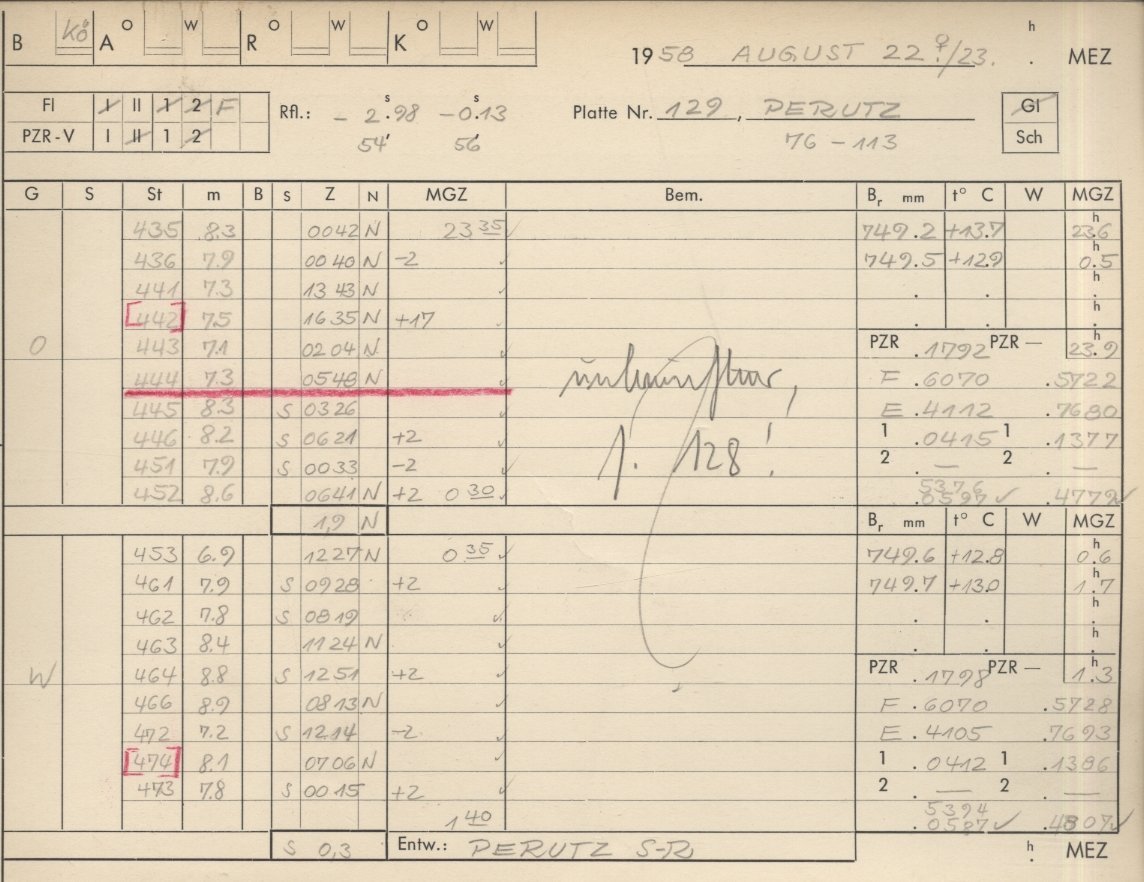 B Kö A O W R O W K O W
1958 AUGUST 22.♀/23. h MEZ
FI I II 1 2 F
PZR-V I II 1 2
Rfl.: -2.s98 -0.s13
54' 56'
Platte Nr. 129, PERUTZ
76 - 113
Gl
Sch
G S St m B S Z N MGZ Bem. Br mm t° C W MGZ
435 8.3 0042 N 23 35 ✓ 749.2 +13.7 23.h6
436 7.9 0040 N -2 ✓ 749.5 +12.9 0.h5
441 7.3 1343 N ✓ . . h
[442] 7.5 1635 N +17 ✓ . . h
O 443 7.1 0204 N ✓ PZR .1792 PZR — 23.h9
444 7.3 0548 N ✓ F .6070 .5722
445 8.3 S 0326 ✓ E .4112 .7680
446 8.2 S 0621 +2 ✓ 1 .0415 1 .1377
451 7.9 S 0033 -2 ✓ 2 — 2 —
452 8.6 0641 N +2 0 30 ✓ 5376 .0597 ✓ .4779 ✓
f. 128!
1,9 N Br mm t° C W MGZ
453 6.9 1227 N 0 35 ✓ 749.6 +12.8 0.h6
461 7.9 S 0928 +2 ✓ 749.7 +13.0 1.h7
462 7.8 S 0819 ✓ . . h
463 8.4 1124 N ✓ . . h
W 464 8.8 S 1251 +2 ✓ PZR .1798 PZR — 1.h3
466 8.9 0813 N ✓ F .6070 .5728
472 7.2 S 1214 -2 ✓ E .4105 .7693
[474] 8.1 0706 N ✓ 1 .0412 1 .1386
473 7.8 S 0015 +2 ✓ 2 — 2 —
1 40 5394 .0587 ✓ .4807 ✓
S 0,3 Entw.: PERUTZ S-R h MEZ